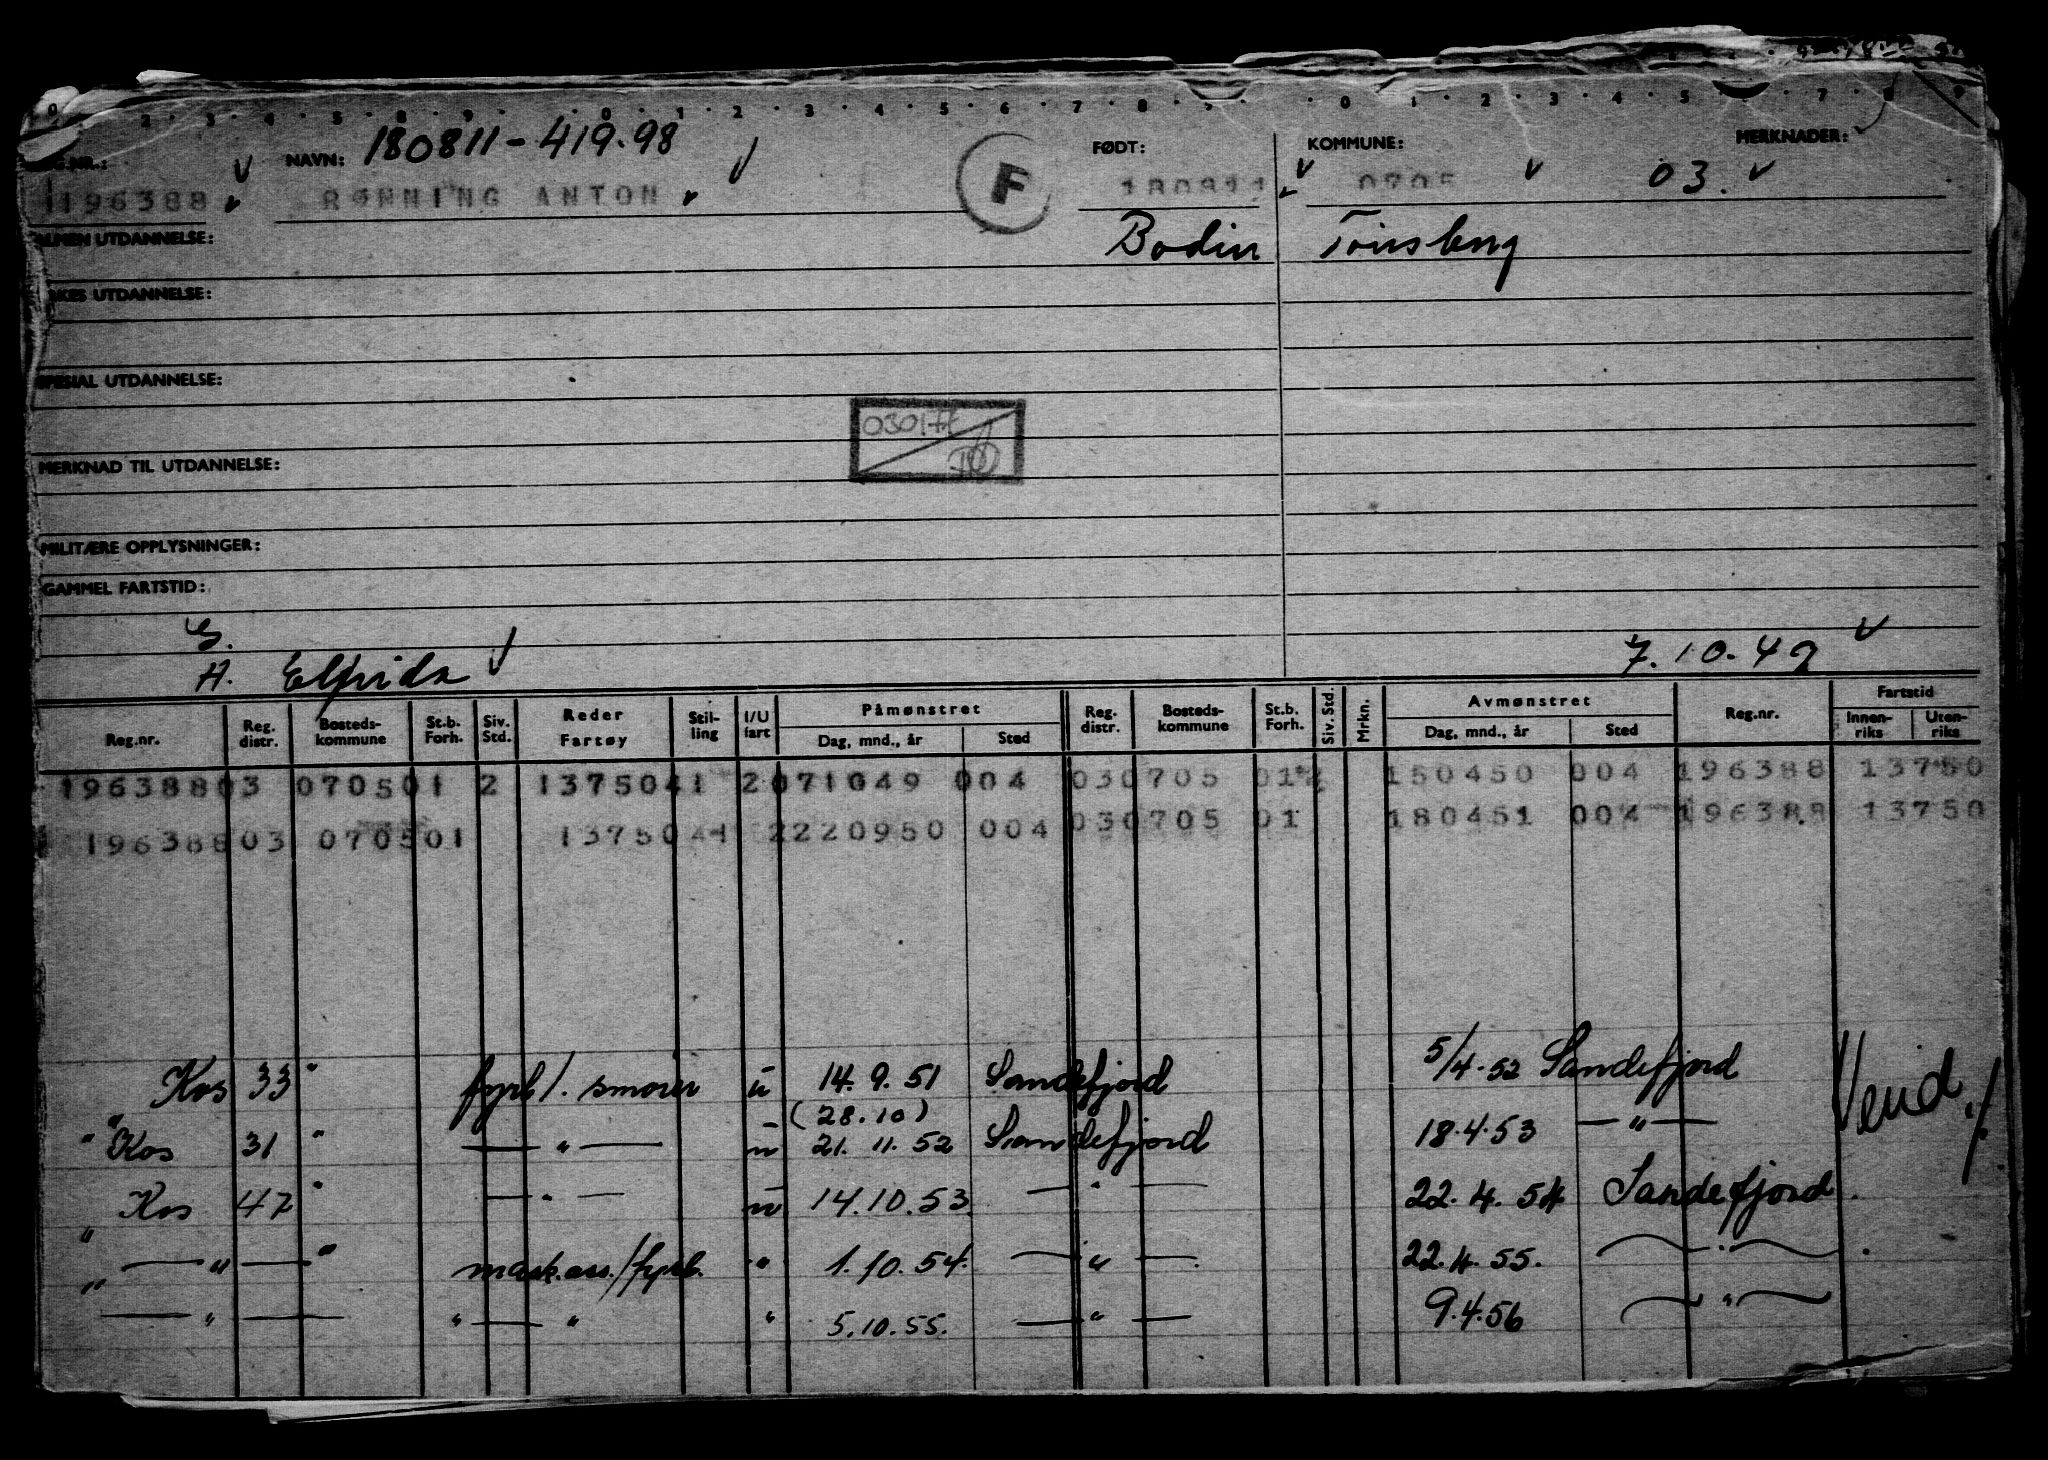 NAVN: 180811-419.98 FØDT: KOMMUNE: MERKNADER:
196388 RØNNING ANTON F 180811 0705 03.
UTDANNELSE: Bodin Tönsberg
UTDANNELSE:
SPESIAL UTDANNELSE:
0301
MERKNAD TIL UTDANNELSE:
MILITÆRE OPPLYSNINGER:
GAMMEL FARTSTID:
G.
H. Elfrida 7.10.49
Reg.nr. Reg. distr. Bosteds-kommune St.b. Forh. Siv. Std. Reder Fartøy Stil-ling I/U fart Påmønstret Dag, mnd., år Sted Reg. distr. Bosteds-kommune St.b. Forh. Siv. Std. Mrkn. Avmønstret Dag, mnd., år Sted Reg.nr. Fartstid Innen-riks Uten-riks
196388 03 0705 01 2 13750 41 2 071049 004 03 0705 01 150450 004 196388 13750
196388 03 0705 01 13750 41 2 220950 004 03 0705 01 180451 004 196388 13750
Kos 33 " fyrb/. smører u 14.9.51 Sandefjord 5/4.52 Sandefjord Vend ./.
(28.10)
" Kos 31 " — " — u 21.11.52 Sandefjord 18.4.53 — " —
" Kos 47 " — " — u 14.10.53. — " — 22.4.54 Sandefjord.
" — " — " mask.ass./fyrb. " 1.10.54. — " — 22.4.55. — " —
— " — " — " " 5.10.55. — " — 9.4.56 — " —